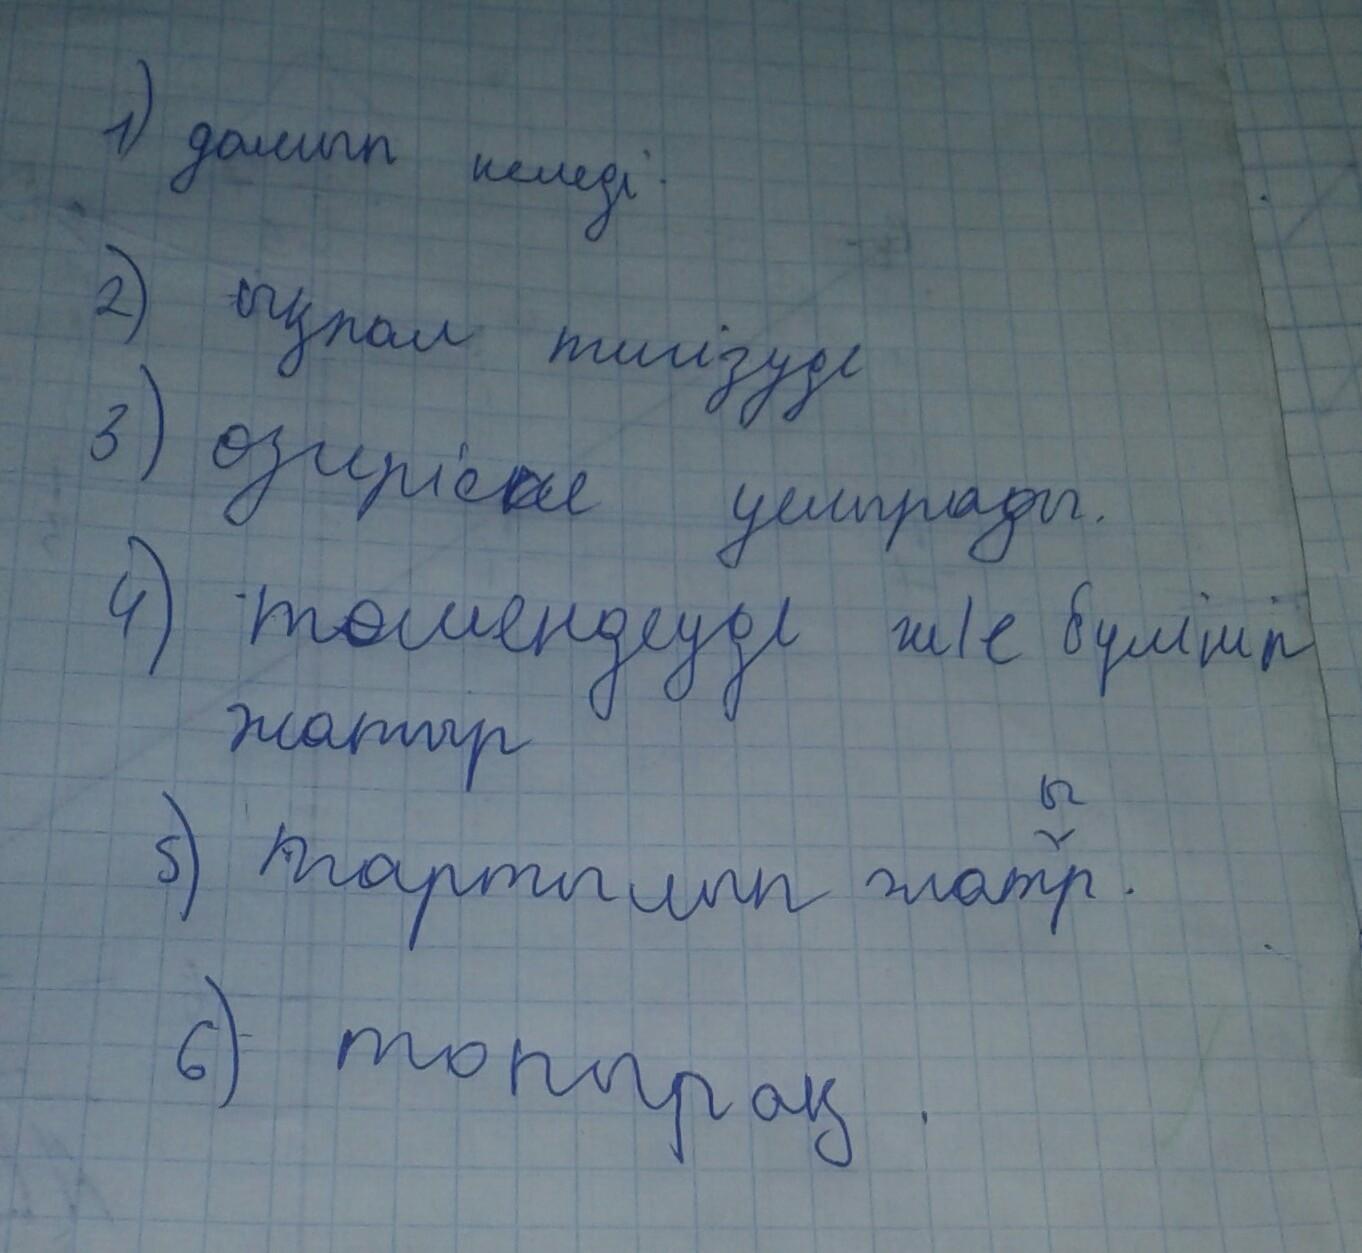 1) дамып келеді.
2) ықпал тигізуде
3) өзгеріске ұшырады.
4) төмендеуде ж/е бүлініп
жатыр
ы
5) тартылып жатр.
6) топырақ.